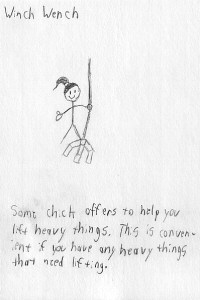 Winch Wench
Some chick offers to help you
lift heavy things. This is conven-
ient if you have any heavy things
that need lifting.